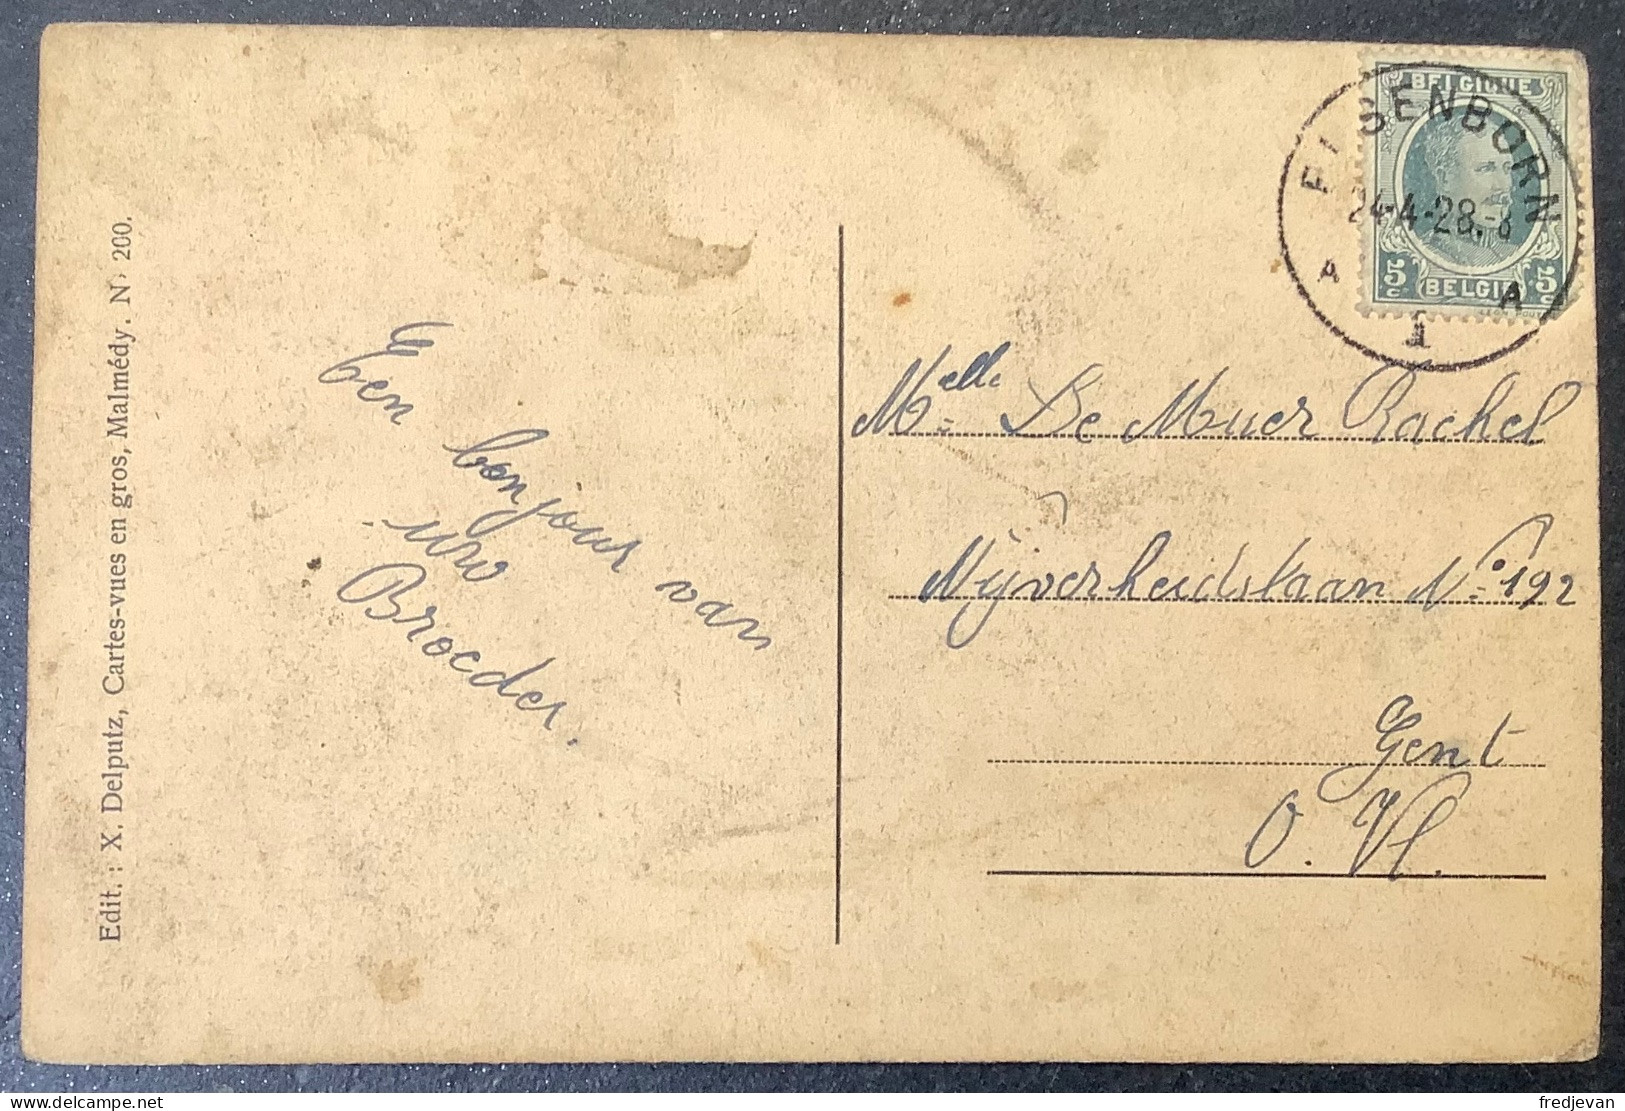 Edit. : X. Delputz, Cartes-vues en gros, Malmédy. N° 200.
Een
bonjour van
uw
Broeder.
BELGIQUE
ELSENBORN
24-4-28.-8
A A
1
5c BELGIË 5c
Melle De Muer Rachel
Nijverheidstaan No 192
Gent
O. Vl.
delcampe.net
fredjevan